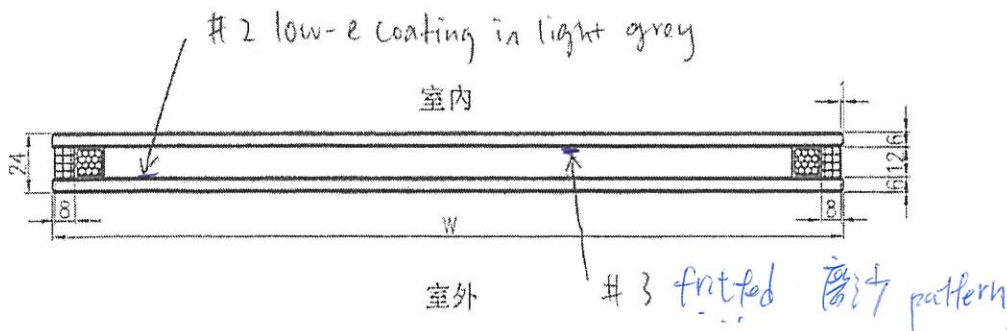 #2 low-e coating in light grey
室内
24
6
12
6
8
8
W
室外
#3 fritted 磨沙 pattern